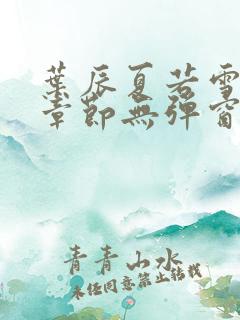 葉辰夏若雪
章節無彈窗
青青山水
未经同意禁止转载